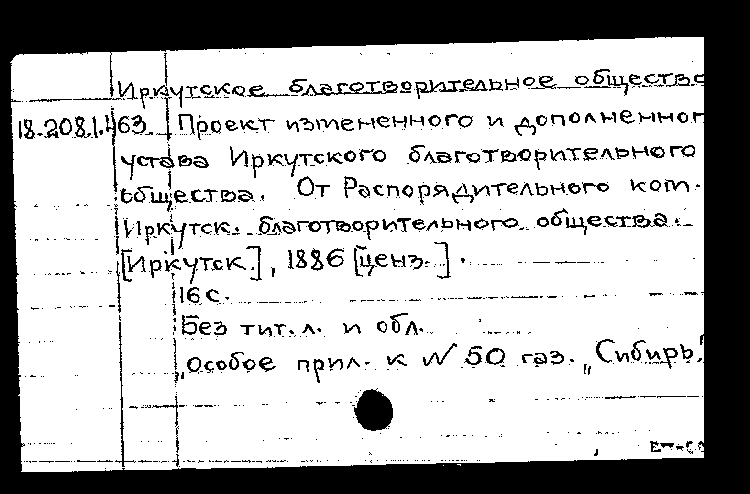 Иркутское благотворительное общество
18.208.1.463 Проект измененного и дополненног
устава Иркутского благотворительного
общества. От Распорядительного ком.
Иркутск. благотворительного общества.
[Иркутск], 1886 [ценз.].
16 с.
Без тит. л. и обл.
"Особое прил. к № 50 газ. „Сибирь"